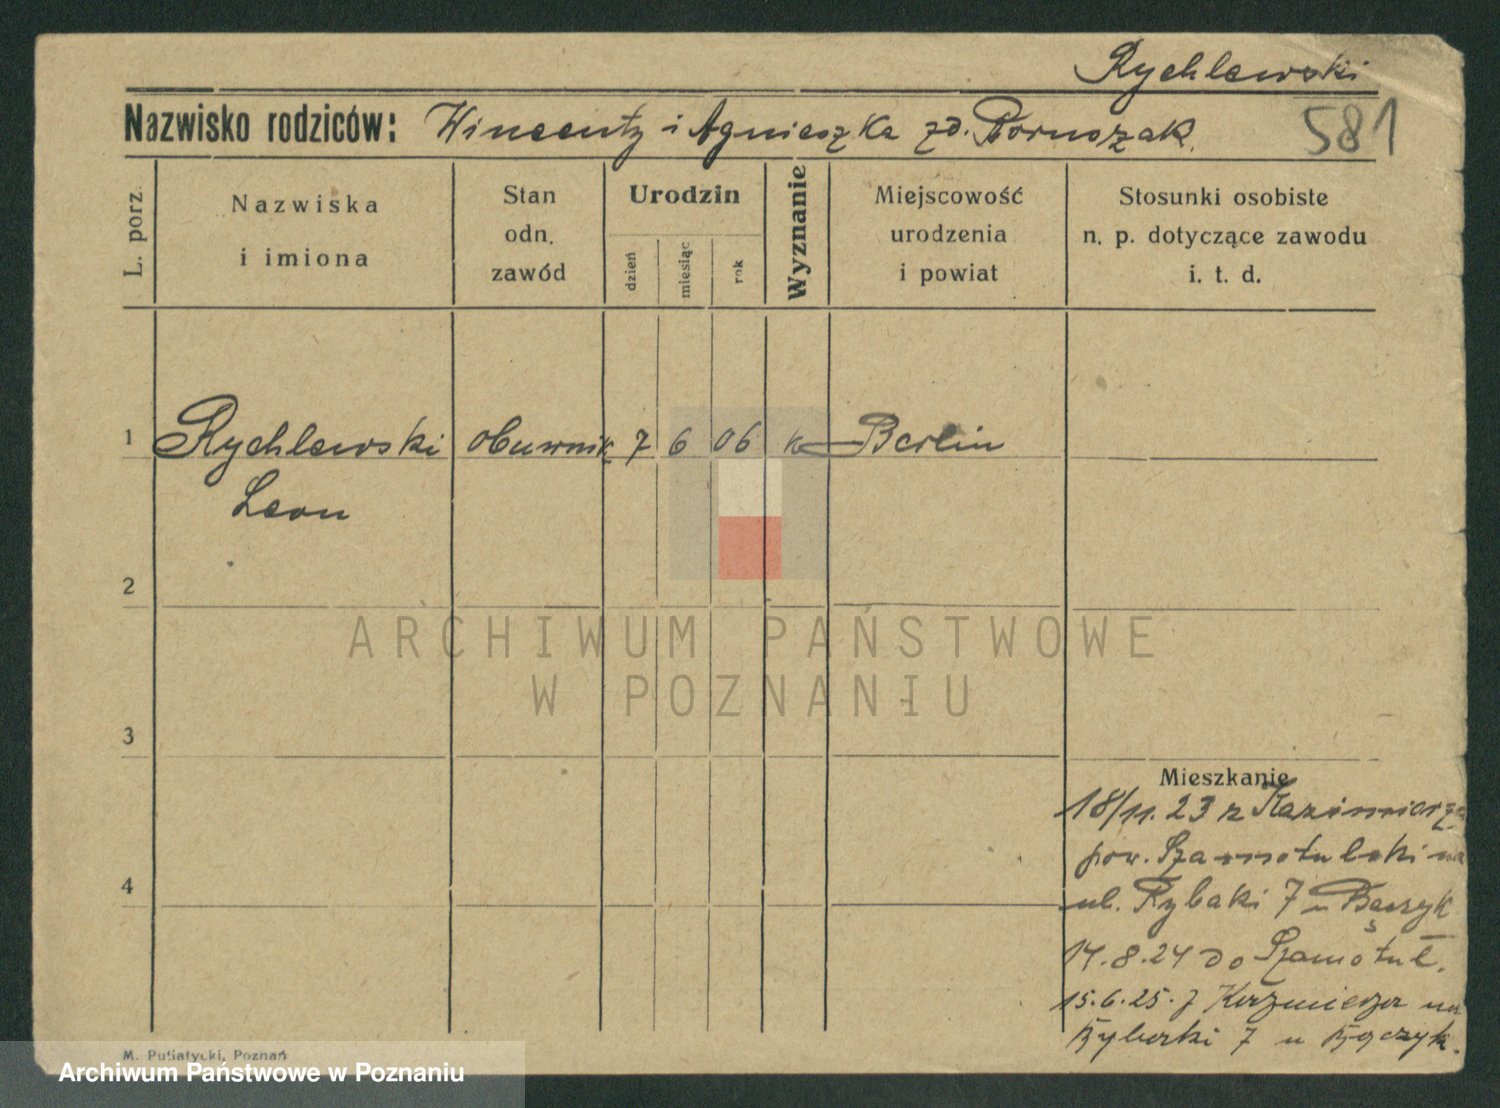 Rychlewski
Nazwisko rodziców: Wincenty i Agnieszka zd.
581
L. porz.
Nazwiska
i imiona
Stan
odn.
zawód
Urodzin
dzień
miesiąc
rok
Wyznanie
Miejscowość
urodzenia
i powiat
Stosunki osobiste
n. p. dotyczące zawodu
i. t. d.
1 Rychlewski obuwnik 7 6 06 k Berlin
Leon
2
ARCHIWUM PAŃSTWOWE
W POZNANIU
3
Mieszkanie
18/11. 23 z Kazimierza
pow. Szamotulski na
4
ul. Rybaki 7 u
14.8.24 do Szamotuł.
15.6.25. z Kazmierza na
Rybaki 7 u
M. Putiatycki, Poznań
Archiwum Państwowe w Poznaniu